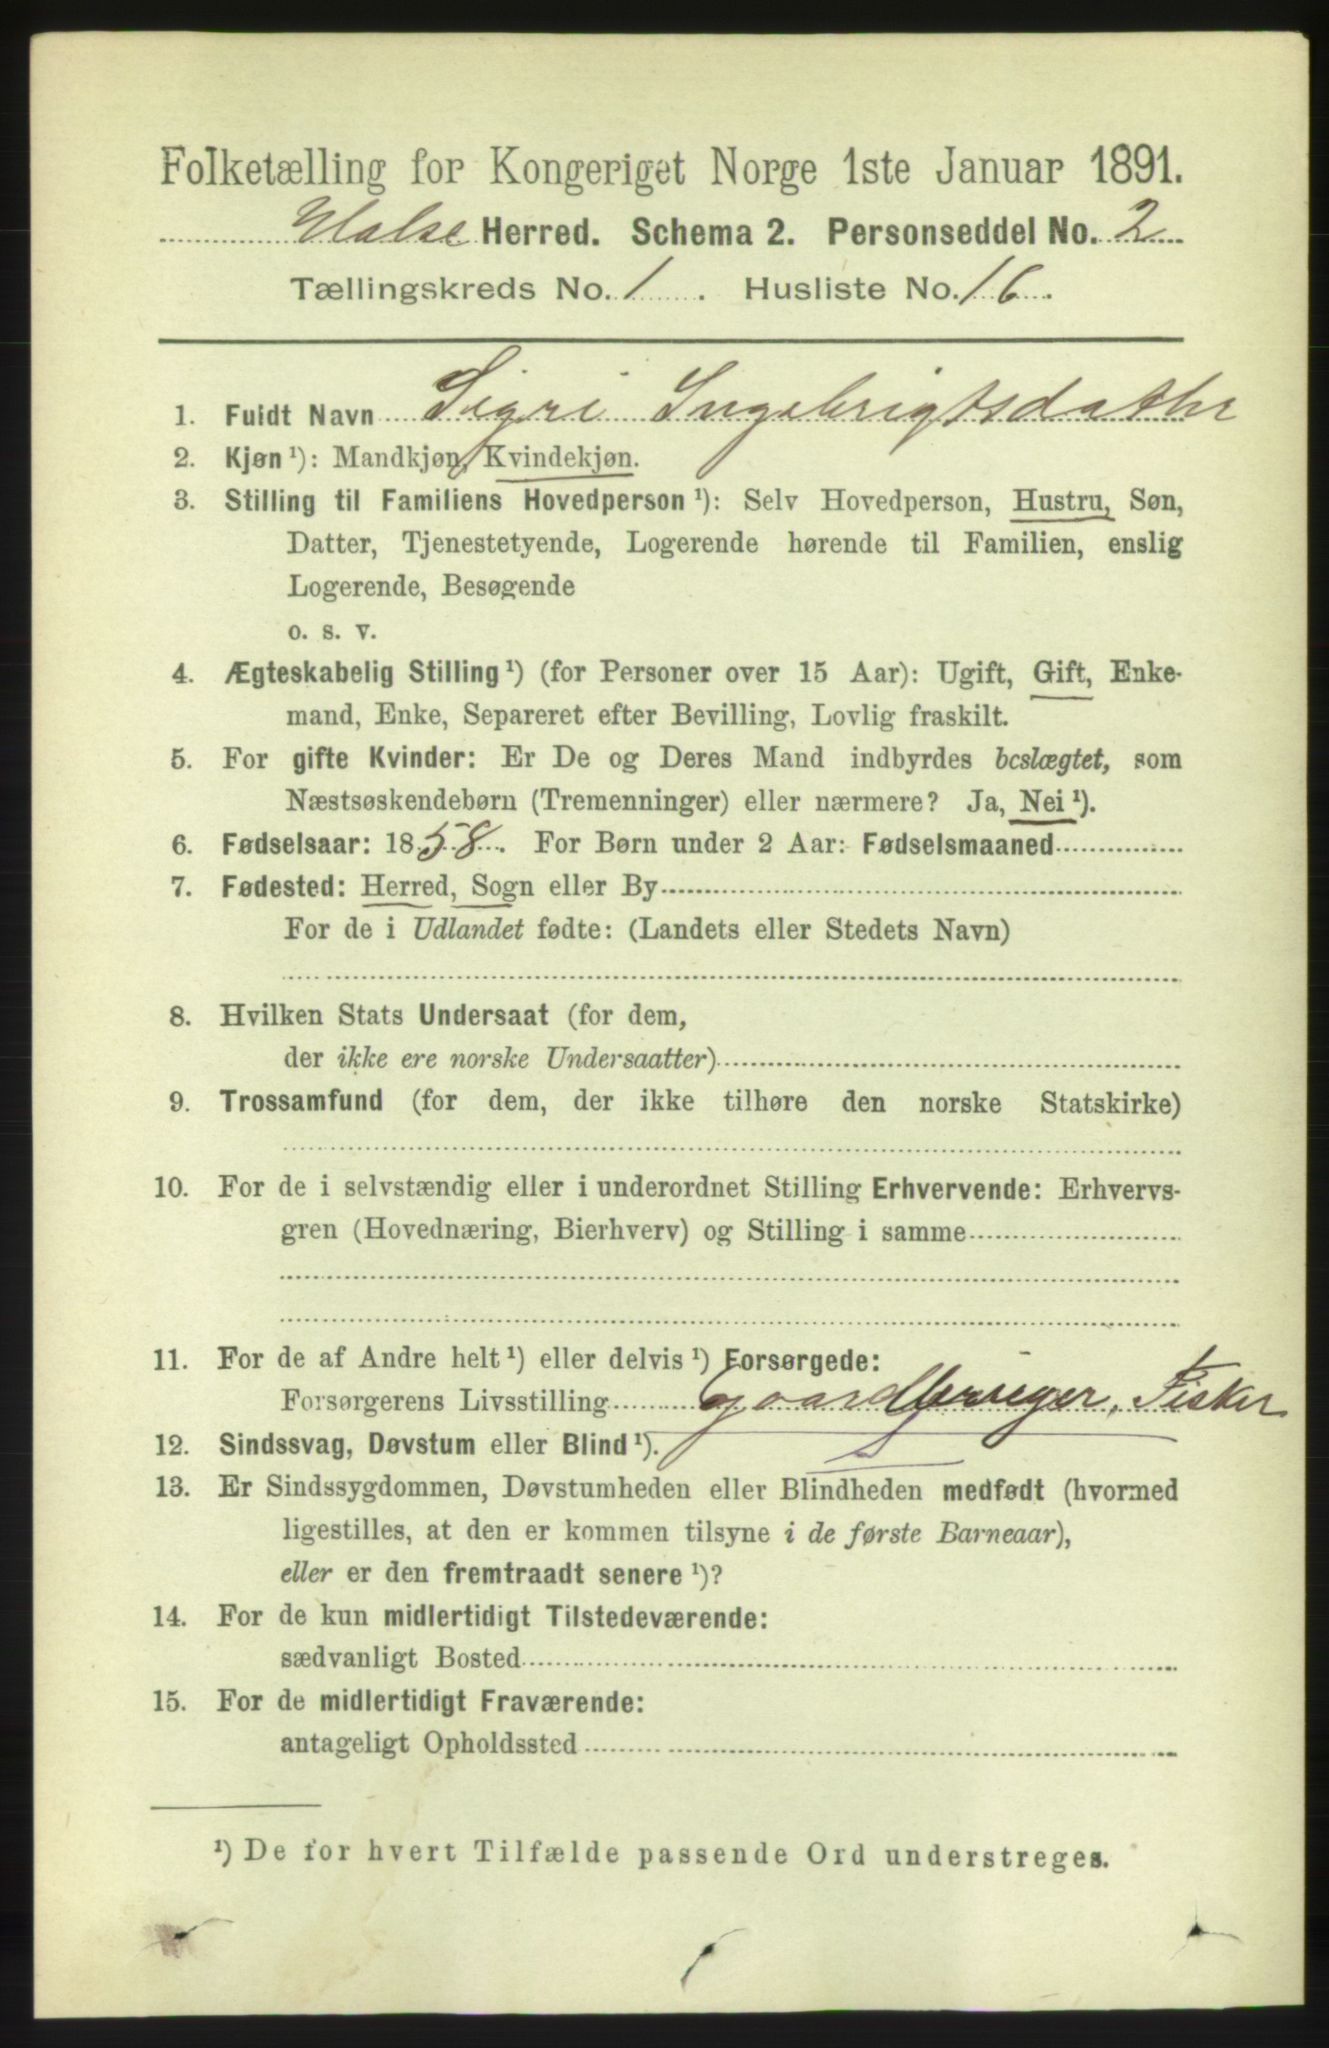 Folketælling for Kongeriget Norge 1ste Januar 1891.
Halse Herred. Schema 2. Personseddel No. 2
Tællingskreds No. 1. Husliste No. 16.
1. Fuldt Navn Sigri Ingebrigtsdatter
2. Kjøn¹): Mandkjøn, Kvindekjøn.
3. Stilling til Familiens Hovedperson¹): Selv Hovedperson, Hustru, Søn,
Datter, Tjenestetyende, Logerende hørende til Familien, enslig
Logerende, Besøgende
o. s. v.
4. Ægteskabelig Stilling¹) (for Personer over 15 Aar): Ugift, Gift, Enke-
mand, Enke, Separeret efter Bevilling, Lovlig fraskilt.
5. For gifte Kvinder: Er De og Deres Mand indbyrdes beslægtet, som
Næstsøskendebørn (Tremenninger) eller nærmere? Ja, Nei¹).
6. Fødselsaar: 1858. For Børn under 2 Aar: Fødselsmaaned
7. Fødested: Herred, Sogn eller By
For de i Udlandet fødte: (Landets eller Stedets Navn)
8. Hvilken Stats Undersaat (for dem,
der ikke ere norske Undersaatter)
9. Trossamfund (for dem, der ikke tilhøre den norske Statskirke)
10. For de i selvstændig eller i underordnet Stilling Erhvervende: Erhvervs-
gren (Hovednæring, Bierhverv) og Stilling i samme
11. For de af Andre helt¹) eller delvis¹) Forsørgede:
Forsørgerens Livsstilling gaardbruger, Fisker
12. Sindssvag, Døvstum eller Blind¹).
13. Er Sindssygdommen, Døvstumheden eller Blindheden medfødt (hvormed
ligestilles, at den er kommen tilsyne i de første Barneaar),
eller er den fremtraadt senere¹)?
14. For de kun midlertidigt Tilstedeværende:
sædvanligt Bosted
15. For de midlertidigt Fraværende:
antageligt Opholdssted
¹) De for hvert Tilfælde passende Ord understreges.